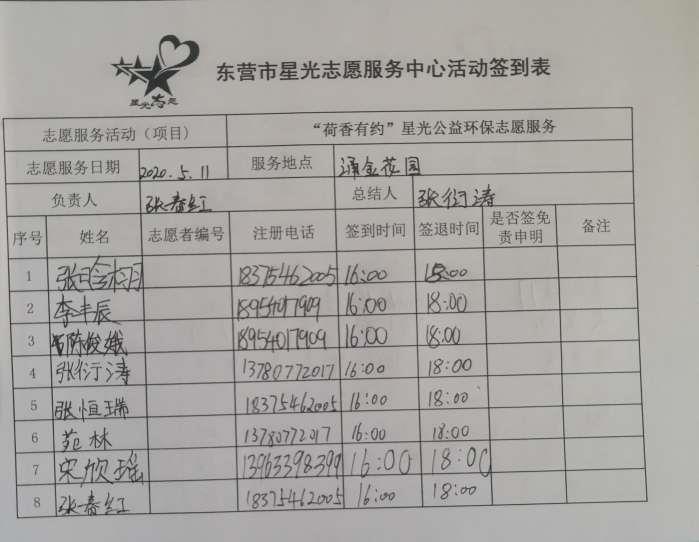 星光志愿
东营市星光志愿服务中心活动签到表
志愿服务活动（项目） “荷香有约”星光公益环保志愿服务
志愿服务日期 2020.5.11 服务地点 涌金花园
负责人 张春红 总结人 张衍涛
序号 姓名 志愿者编号 注册电话 签到时间 签退时间 是否签免责申明 备注
1 张 18375462005 16:00 18:00
2 李丰辰 18954017909 16:00 18:00
3 陈俊娥 18954017909 16:00 18:00
4 张衍涛 13780772017 16:00 18:00
5 张恒瑞 18375462005 16:00 18:00
6 苑林 13780772017 16:00 18:00
7 宋欣瑶 13963398399 16:00 18:00
8 张春红 18375462005 16:00 18:00